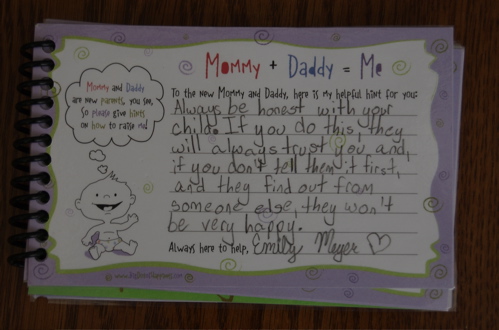 Mommy + Daddy = Me
Mommy and Daddy
are new parents, you see,
So please give hints
on how to raise me!
To the new Mommy and Daddy, here is my helpful hint for you:
Always be honest with your
child. If you do this, they
will always trust you and,
if you don't tell them it first,
and they find out from
someone edge, they won't
be very happy.
Always here to help, Emily Meyer